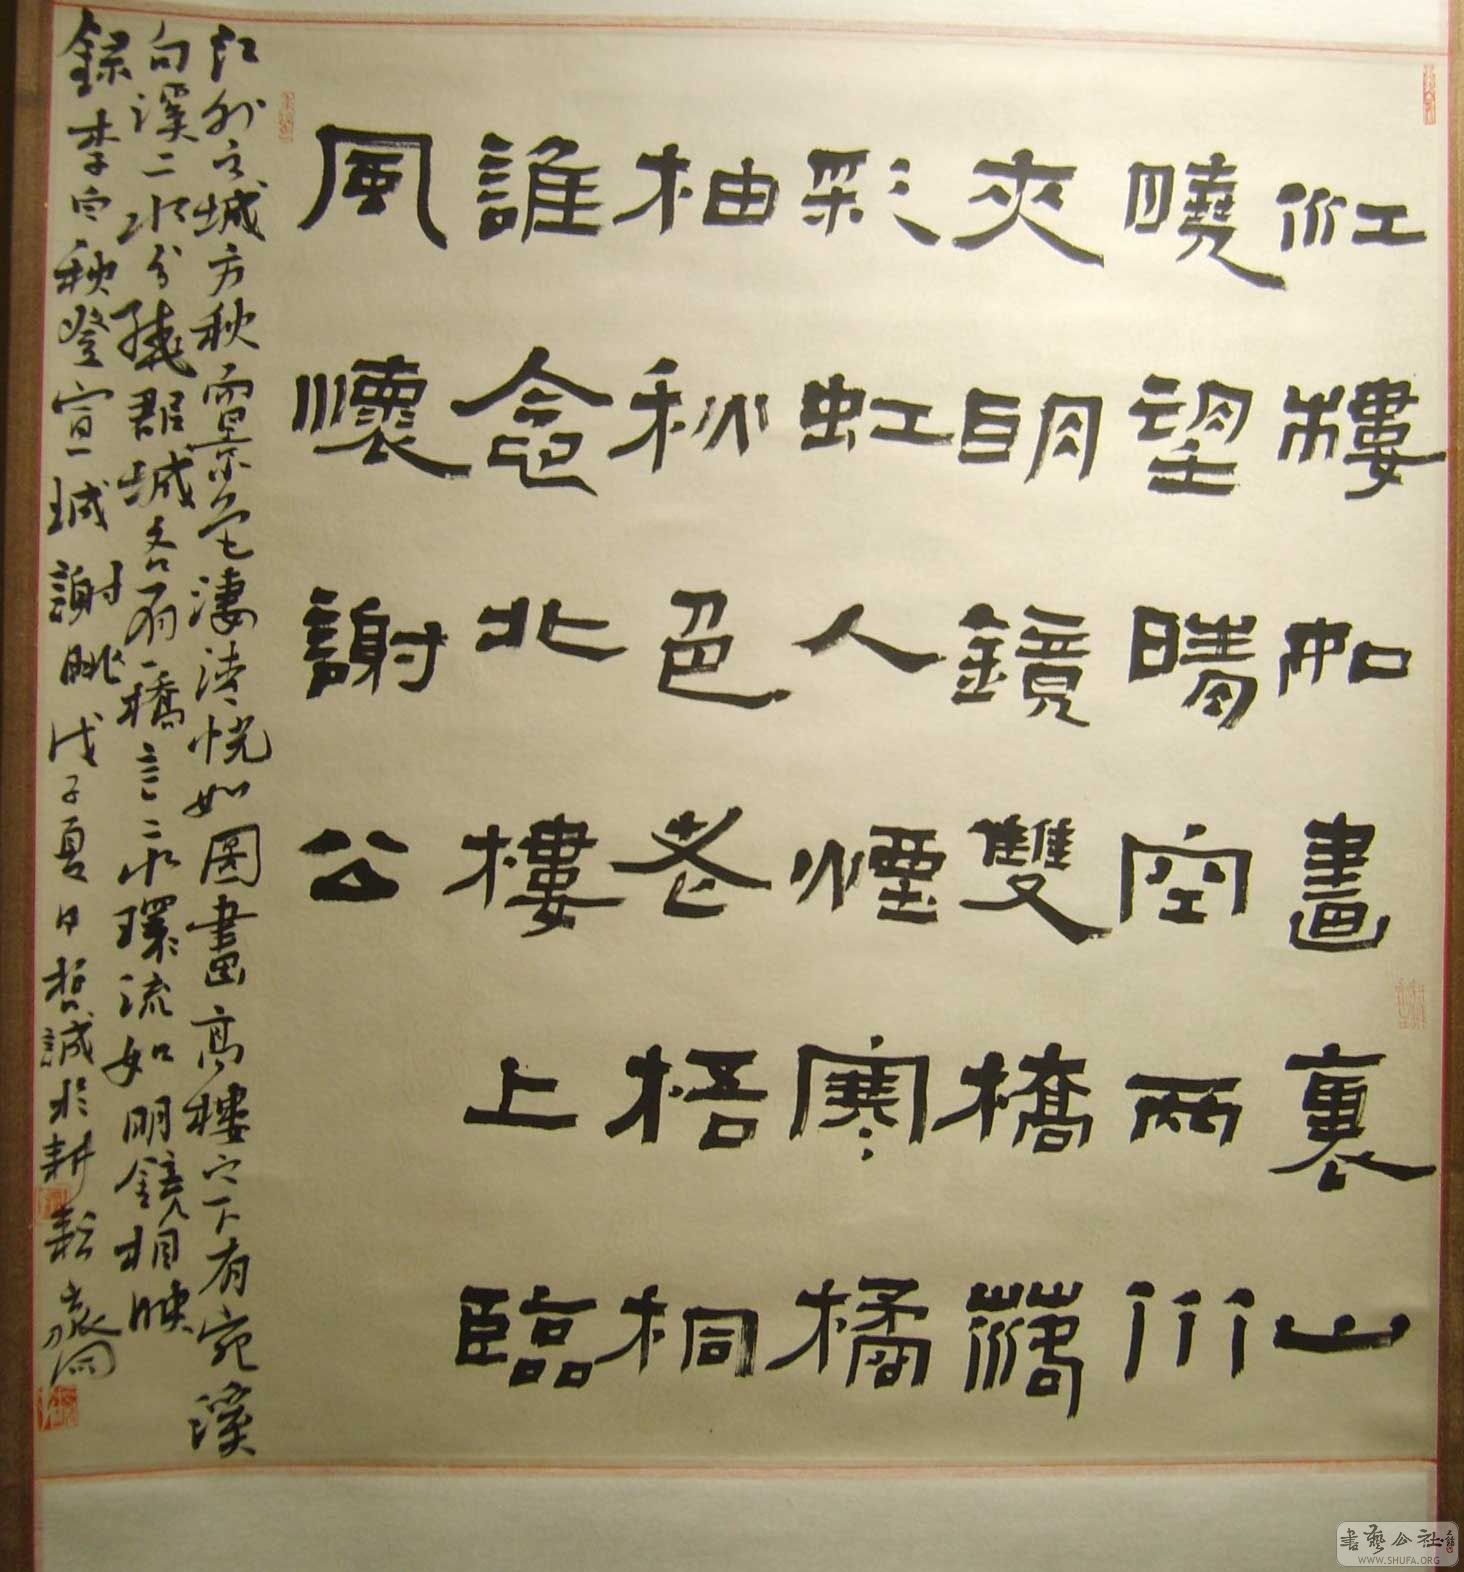 江樓如畫裏山
曉望晴空兩水
夾明鏡雙橋落
彩虹人煙寒橘
柚秋色老梧桐
誰念北樓上臨
風懷謝公
江外之城方秋景色淒清恍如圖畫高樓之下有宛溪
句溪二水分繞郡城各有一橋言二水環流如明鏡相映
錄李白秋登宣城謝朓戊子夏日哲誠於耕耘
書藝公社
WWW.SHUFA.ORG